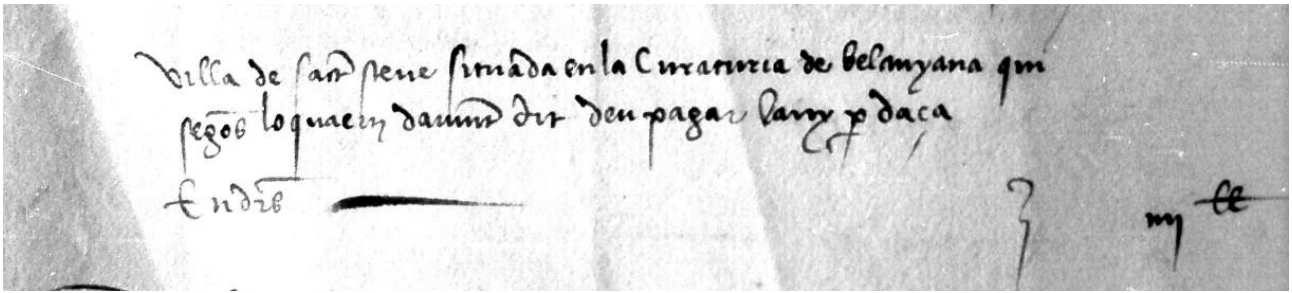 villa de sact steve situada en la Curaturia de belanyana qui
segons lo quaern damunt dit deu pagar lany p daça
En drs
iiij ll